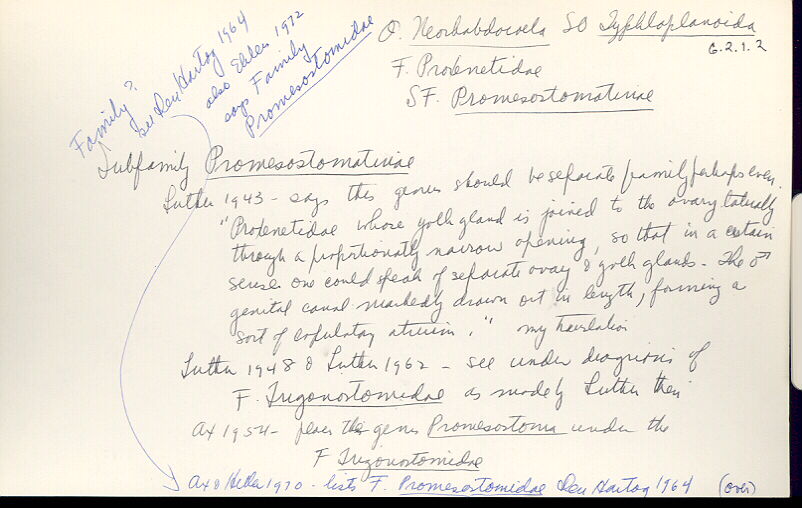 Family?
see Den Hartog 1964
also Ehlers 1972
says Family
Promesostomidae
O. Neorhabdocoela SO Typhloplanoida
6.2.1.2
F. Proxenetidae
SF. Promesostomatinae
Subfamily Promesostomatinae
Luther 1943 - says this genus should be separate family perhaps even.
"Proxenetidae whose yolk gland is joined to the ovary laterally
through a proportionally narrow opening, so that in a certain
sense one could speak of separate ovary & yolk glands - The ♂
genital canal markedly drawn out in length, forming a
sort of copulatory atrium." my translation
Luther 1948 & Luther 1962 - see under diagnosis of
F. Trigonostomidae as made by Luther then
Ax 1954 - places the genus Promesostoma under the
F Trigonostomidae
Ax & Heller 1970 - lists F. Promesostomidae Den Hartog 1964 (over)